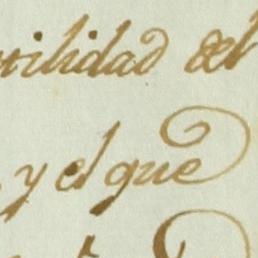 utilidad del
y el que